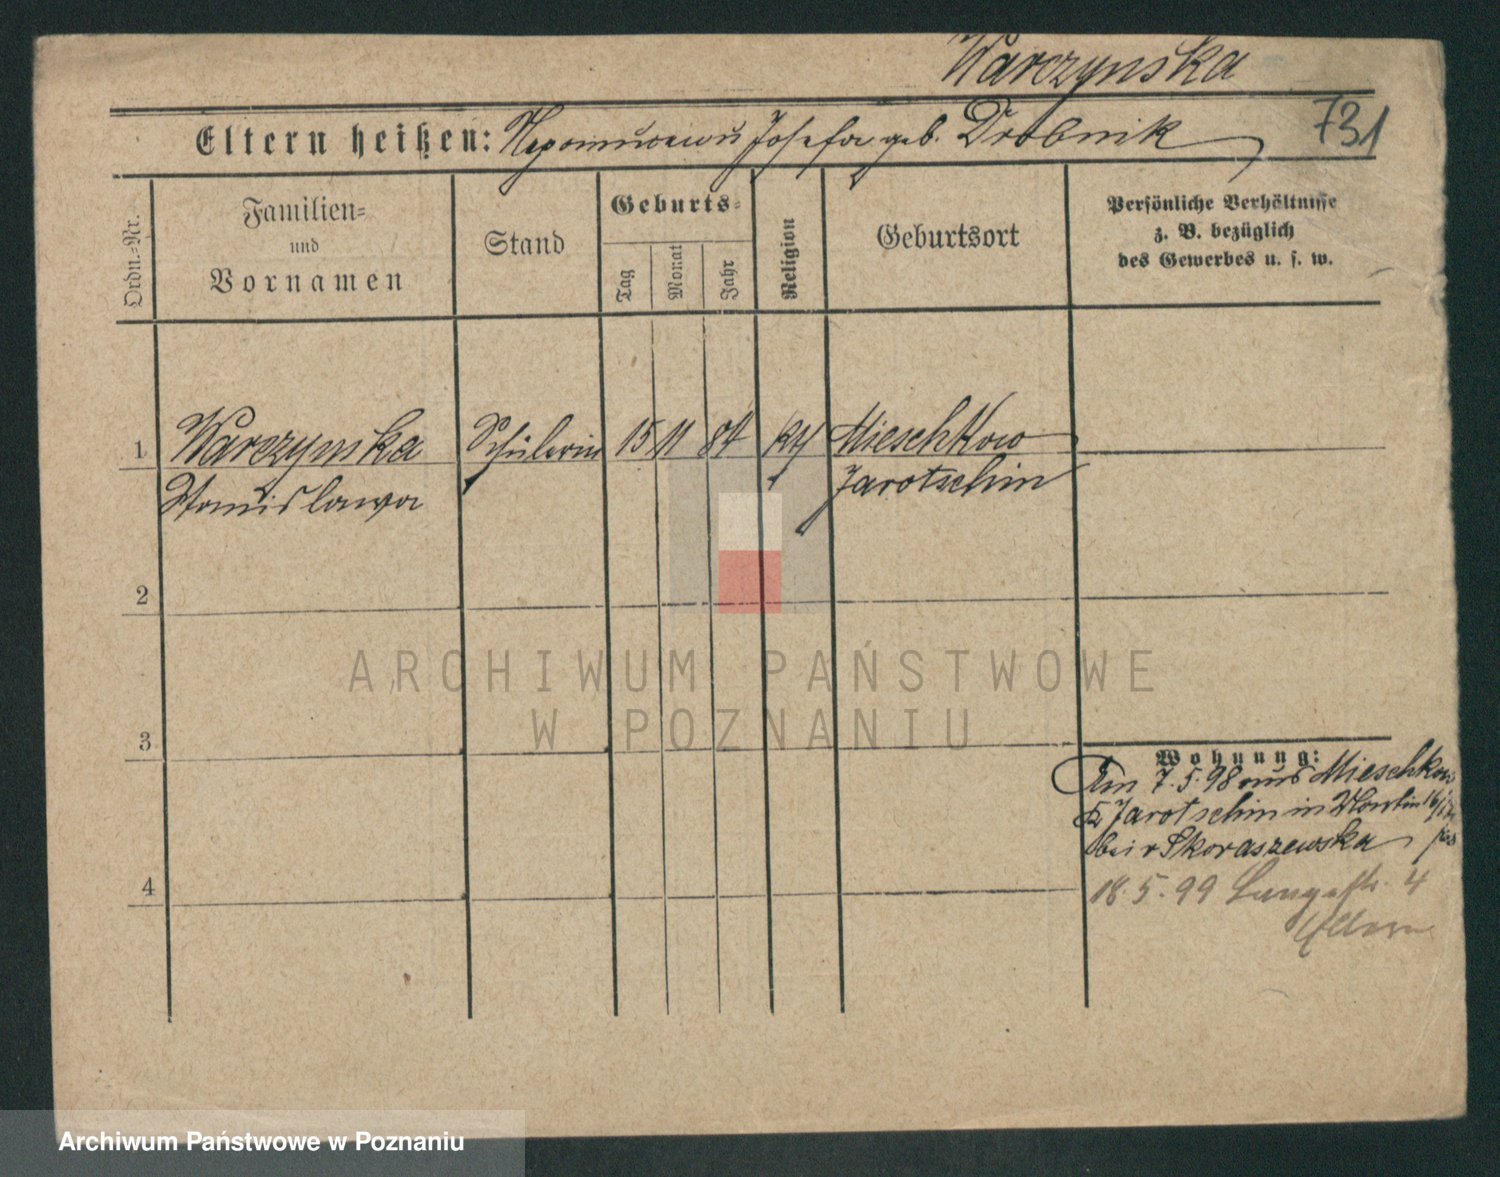 Warczynska
731
Eltern heißen: Nepomucen u Josefa geb. Drobnik
Ordn.-Nr.
Familien-
und
Vornamen
Stand
Geburts-
Tag
Monat
Jahr
Religion
Geburtsort
Persönliche Verhältnisse
z. B. bezüglich
des Gewerbes u. s. w.
1 Warczynska Schülerin 15 11 84 kth Mieschkow
Stanislawa Jarotschin
2
ARCHIWUM PAŃSTWOWE
W POZNANIU
3
Wohnung:
Am 7.5.98 aus Mieschkow
Jarotschin in
bei Skoraszewska
4
18.5.99 Langestr. 4
Eltern
Archiwum Państwowe w Poznaniu